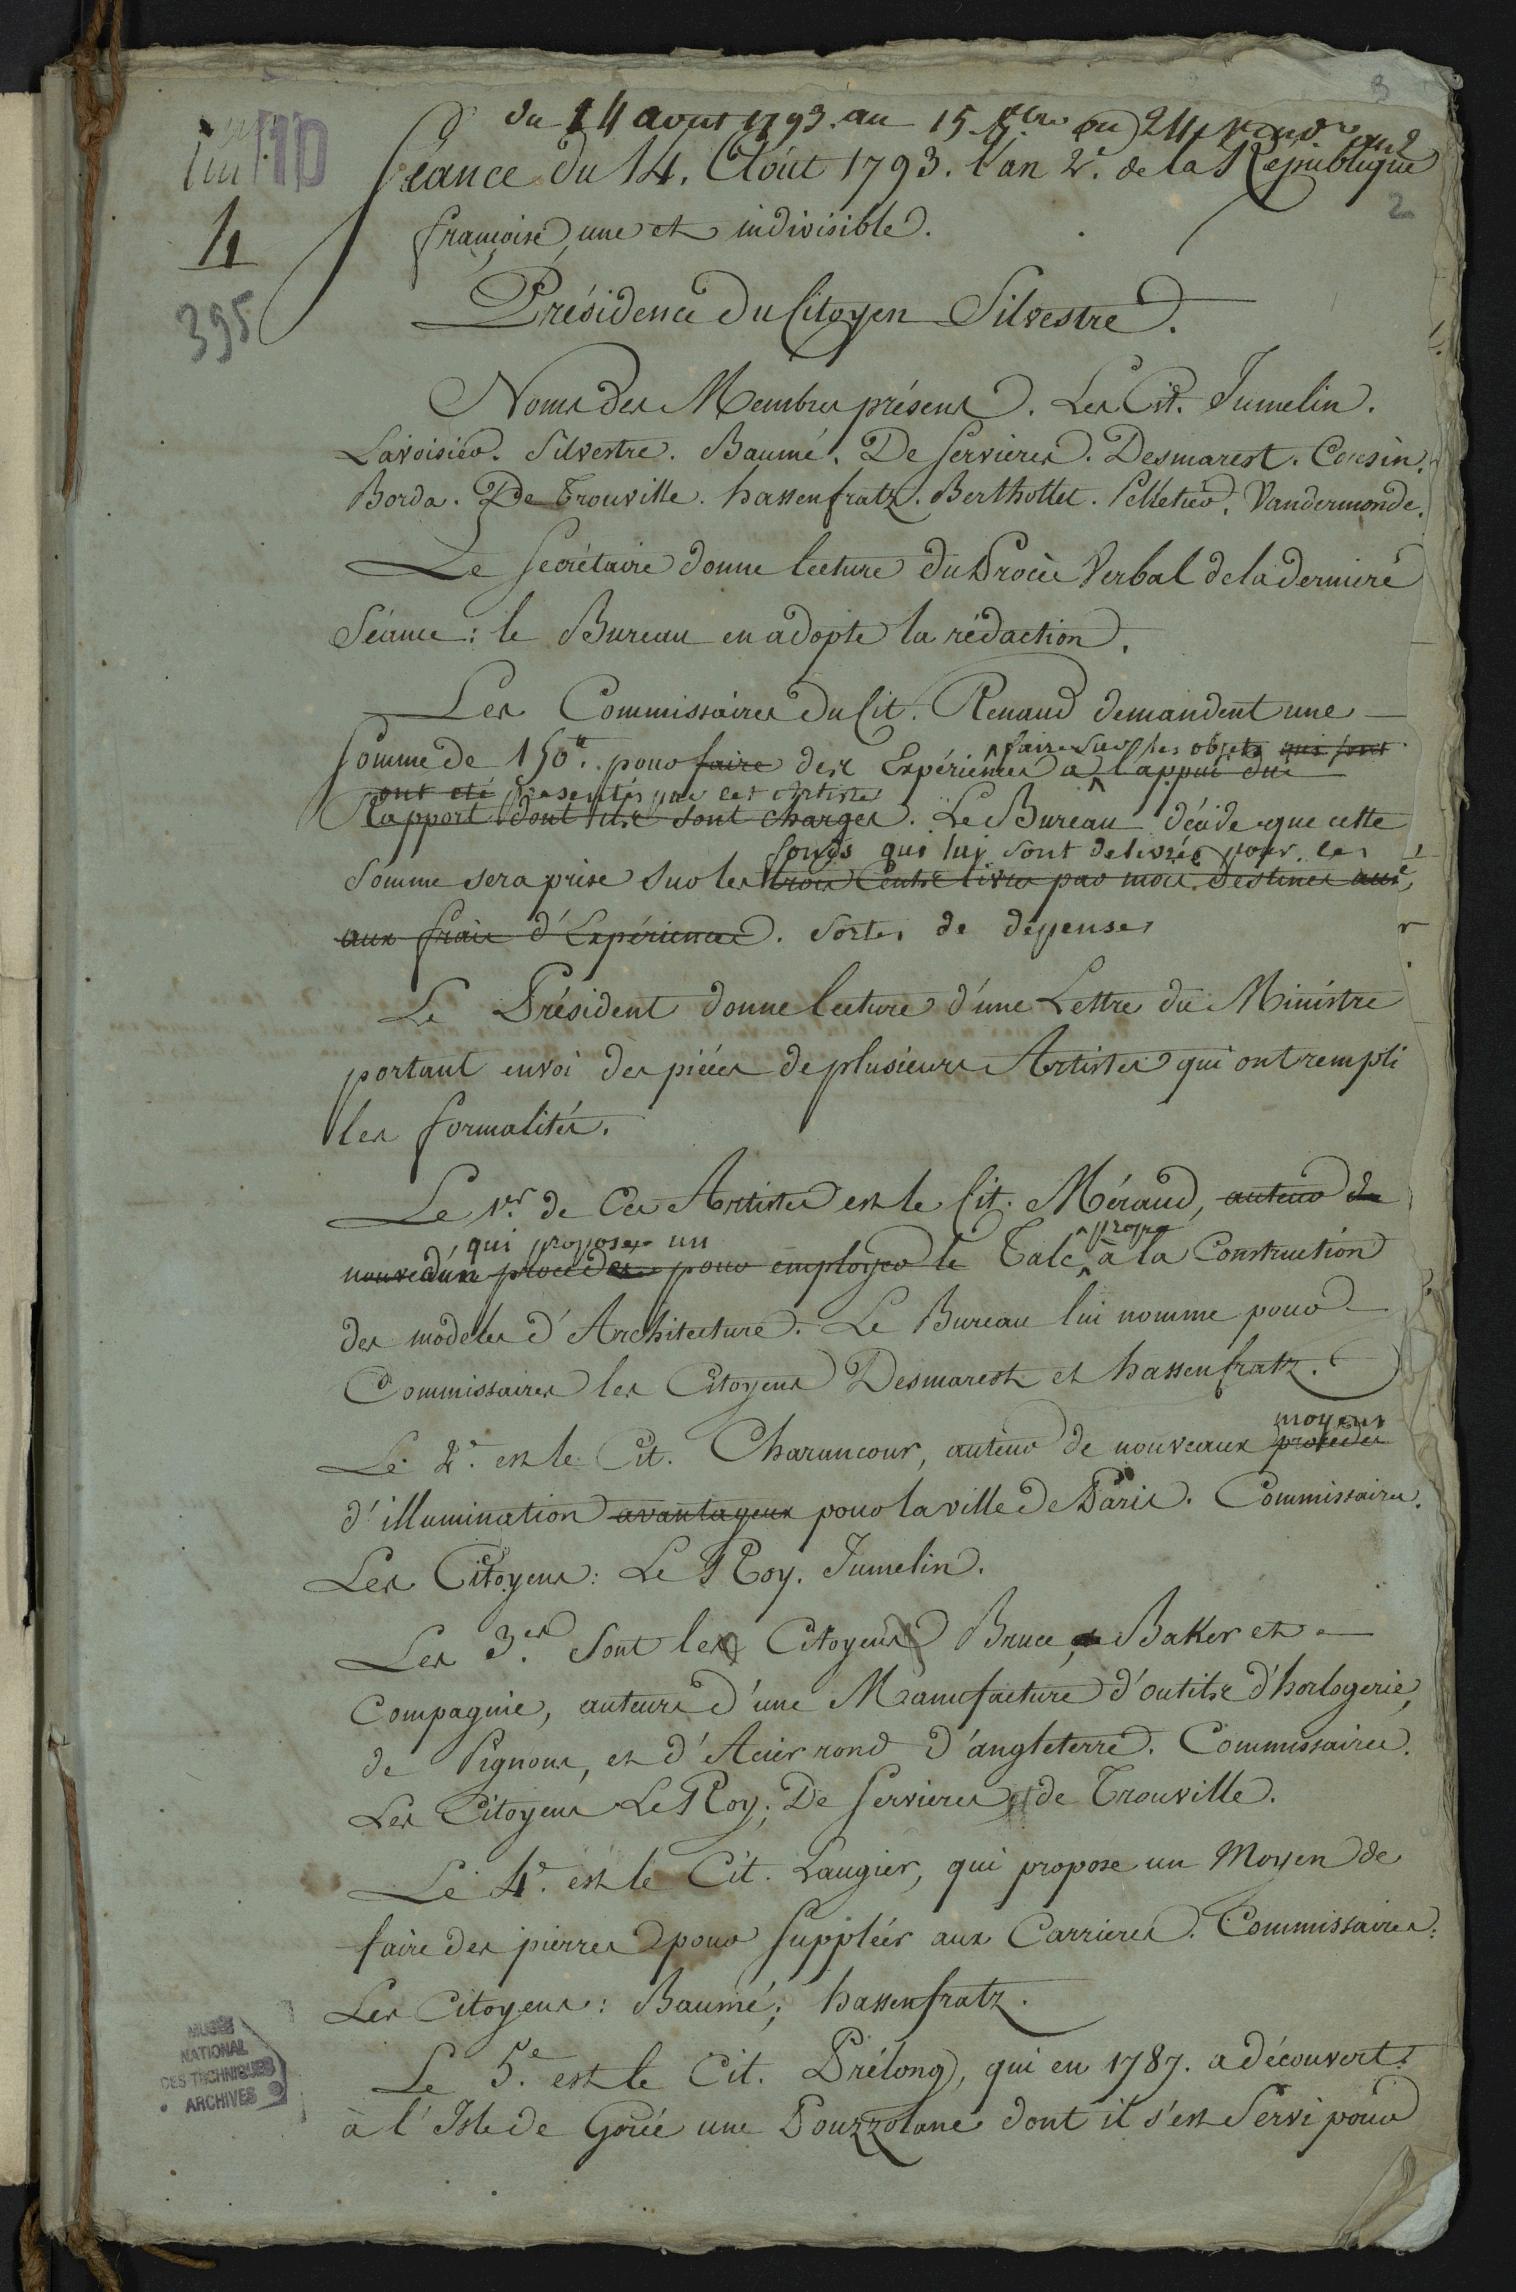 3
10
du 14 aout 1793. au 15. 8bre ou 24 vend.re an 2
Séance du 14. Août 1793. l'an 2e. de la République
2
françoise, une et indivisible.
4
395
Présidence du Citoyen Silvestre.
Noms des Membres présens. Les Cit. Jumelin.
Lavoisier. Silvestre. Baumé. De Servieres. Desmarest. Cousin.
Borda. De Trouville. hassenfratz. Berthollet. Pelletier. Vandermonde.
Le Secrétaire donne lecture du Procès Verbal de la derniere
Séance : le Bureau en adopte la rédaction.
Les Commissaires du Cit. Renaud demandent une
faire sur les objets qui sont
Somme de 150tt. pour faire des Expériences à l'appui du
ont été presentés par les Artistes
Rapport dont ils sont chargés. Le Bureau décide que cette
fonds qui lui sont delivrés pour ces
Somme sera prise sur les trois Cents livres par mois destinés aux
aux frais d'Expériences. sortes de depenses
Le Président donne lecture d'une Lettre du Ministre
portant envoi des piéces de plusieurs Artistes qui ont rempli
les formalités.
Le 1er. de ces Artistes est le Cit. Méraud, auteur de
qui propose un
propre
nouveaux procédés pour employer le Talc à la Construction
des modeles d'Architecture. Le Bureau lui nomme pour
Commissaires les Citoyens Desmarest et hassenfratz.
moyens
Le 2e. est le Cit. Charancour, auteur de nouveaux procédés
d'illumination avantageux pour la ville de Paris. Commissaires.
Les Citoyens : Le Roy. Jumelin.
Les 3es. sont les Citoyens Bruce, Baker et
Compagnie, auteurs d'une Manufacture d'outils d'horlogerie,
de Pignons, et d'Acier rond d'angleterre. Commissaires.
Les Citoyens Le Roy, De Servieres et de Trouville.
Le 4e. est le Cit. Laugier, qui propose un Moyen de
faire des pierres pour suppléer aux Carrieres. Commissaires :
Les Citoyens : Baumé ; hassenfratz.
MUSÉE
NATIONAL
DES TECHNIQUES
ARCHIVES
Le 5e. est le Cit. Prélong, qui en 1787. a découvert
à l'Isle de Gorée une Pouzzolane dont il s'est Servi pour